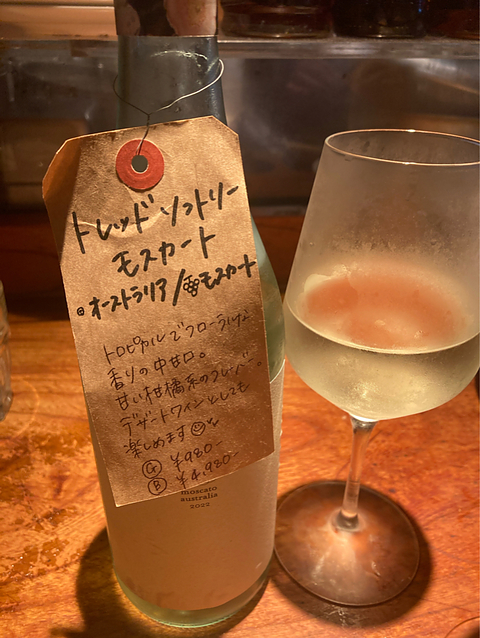 トレッド ソフトリー
モスカート
◎オーストラリア/🍇モスカート
トロピカルでフローラルな
香りの中甘口。
甘い柑橘系のフレーバー。
デザートワインとしても
楽しめます☺
Ⓖ ¥980-
Ⓑ ¥4,980-
moscato
australia
2022